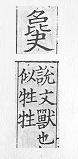 說文獸也
似牲牲